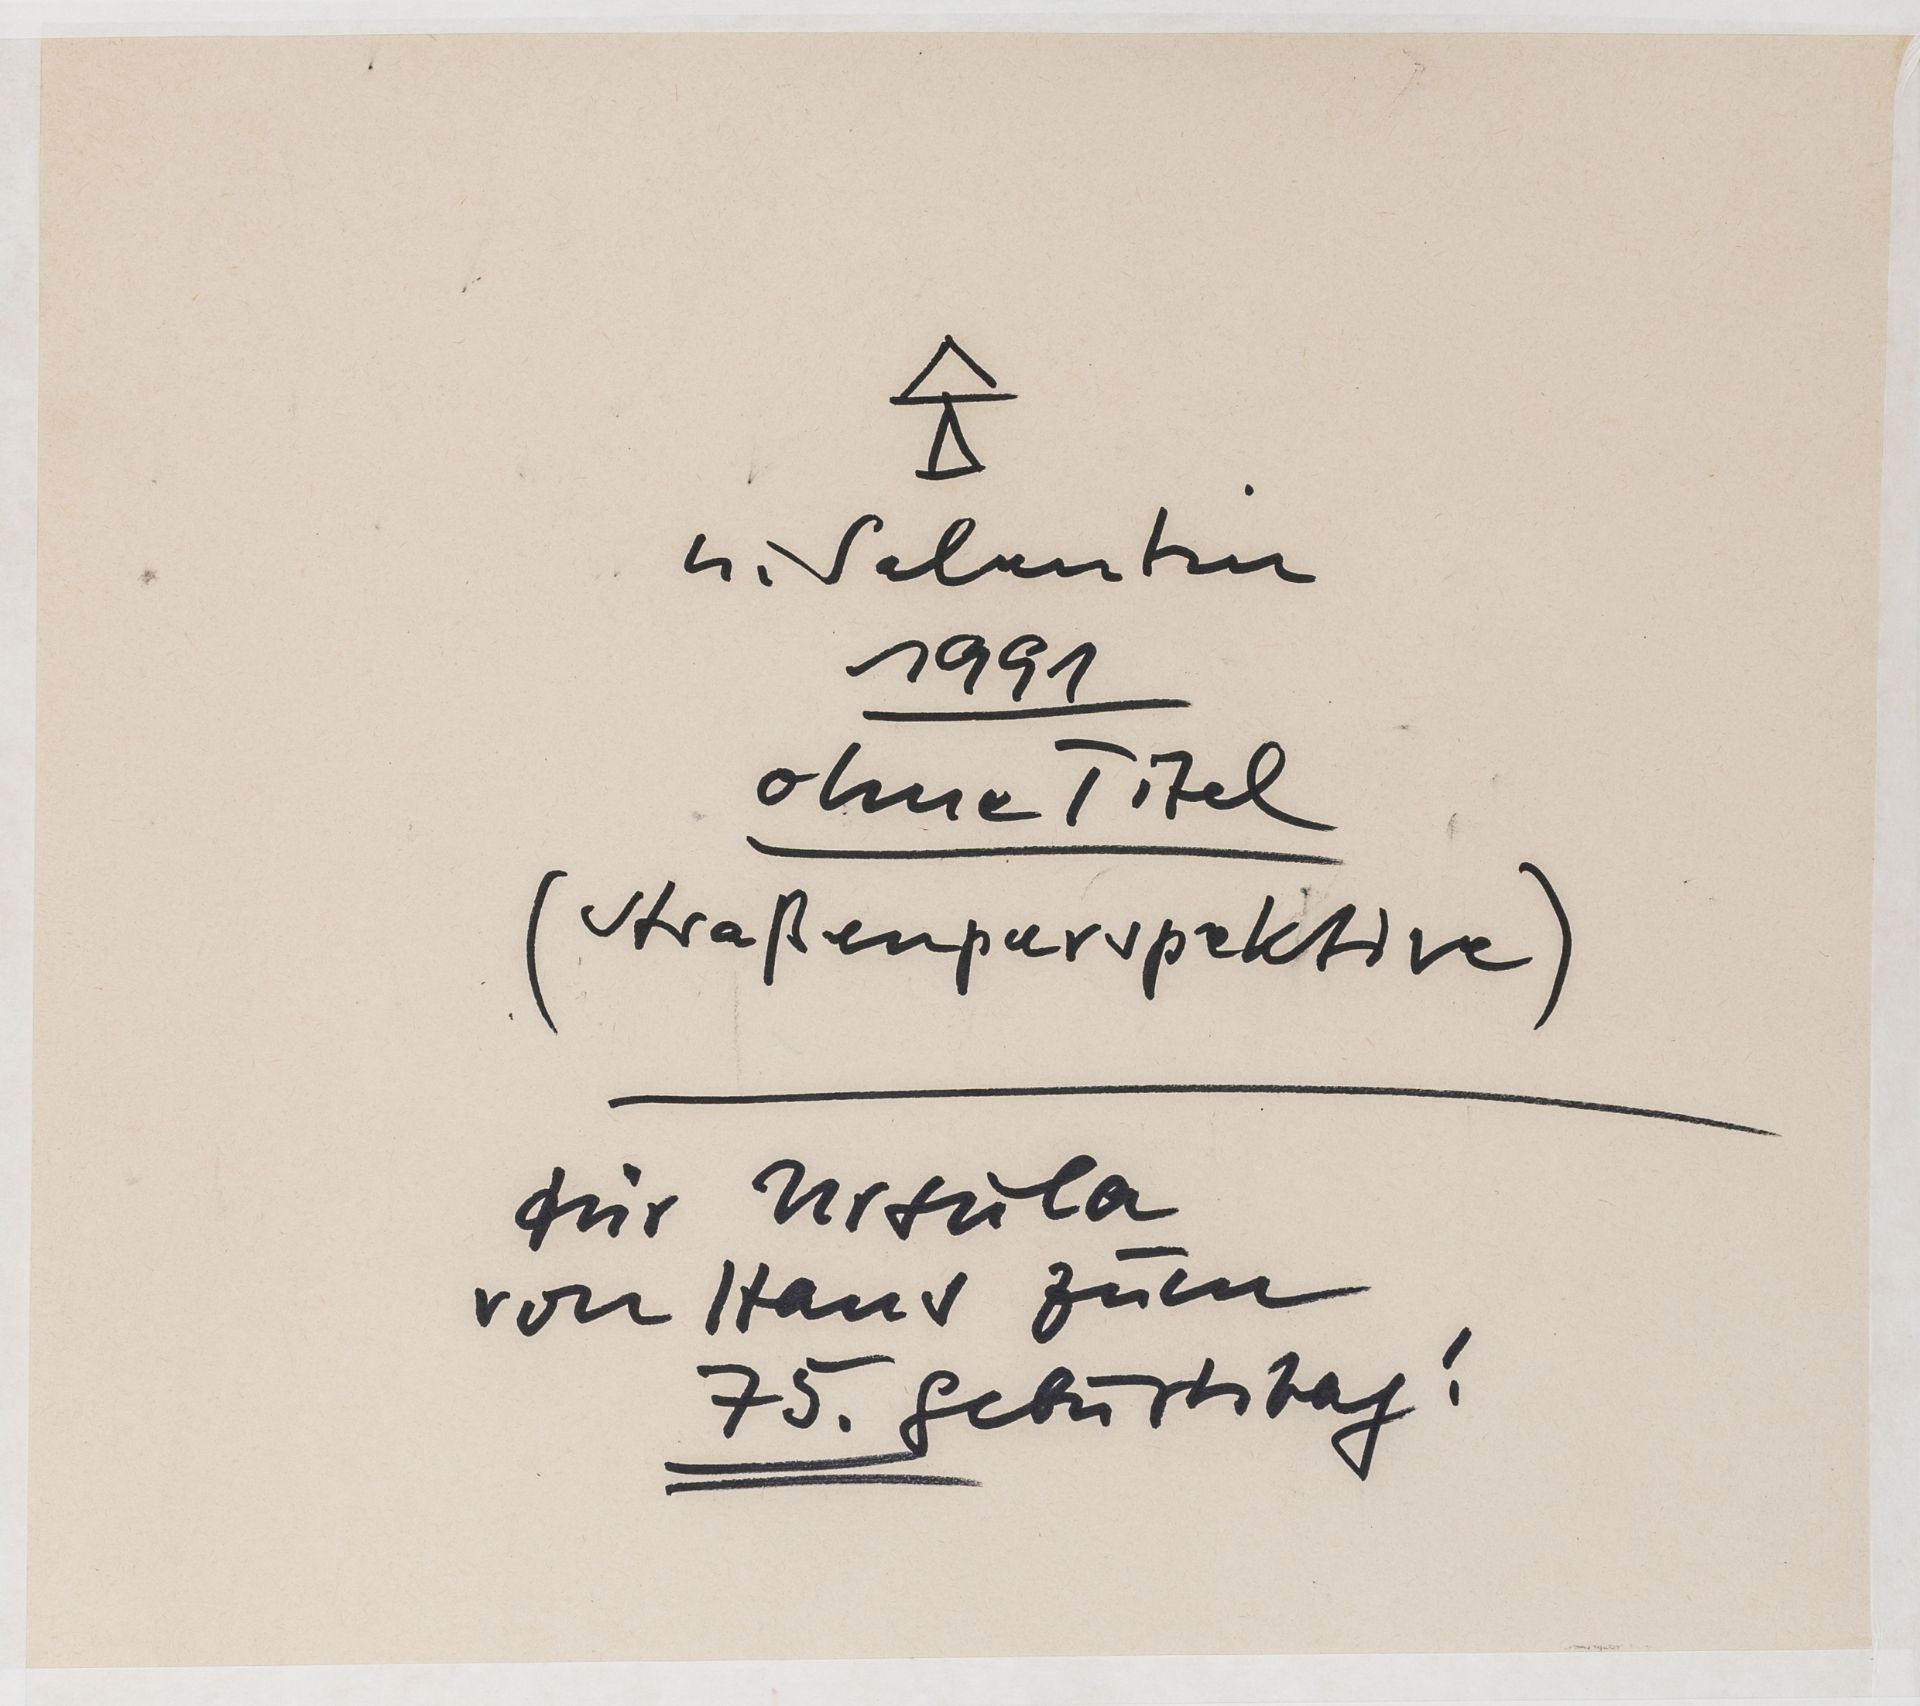 h. Valentin
1991
ohne Titel
(straßenperspektive)
für Ursula
von Hans zum
75. geburtstag!